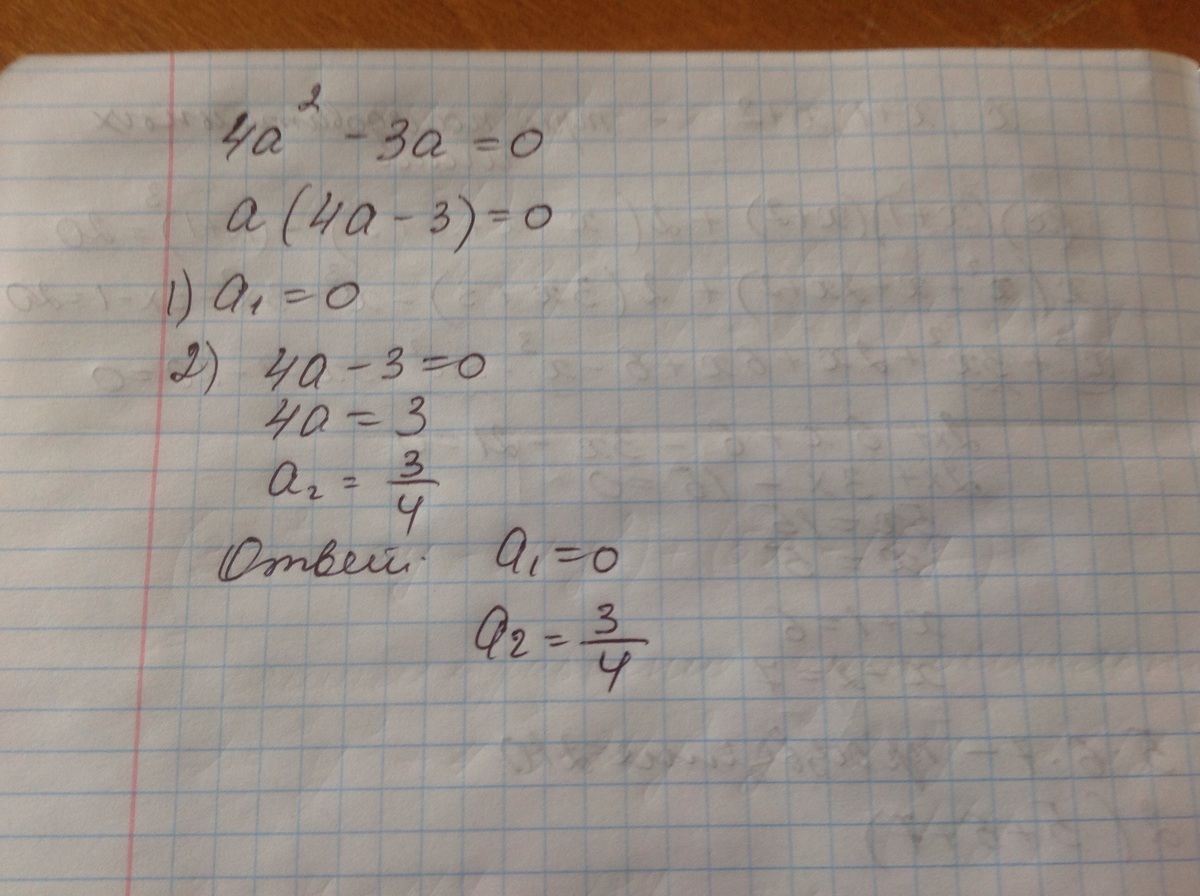 4a² - 3a = 0
a(4a - 3) = 0
1) a₁ = 0
2) 4a - 3 = 0
4a = 3
a₂ = 3/4
Ответ: a₁ = 0
a₂ = 3/4